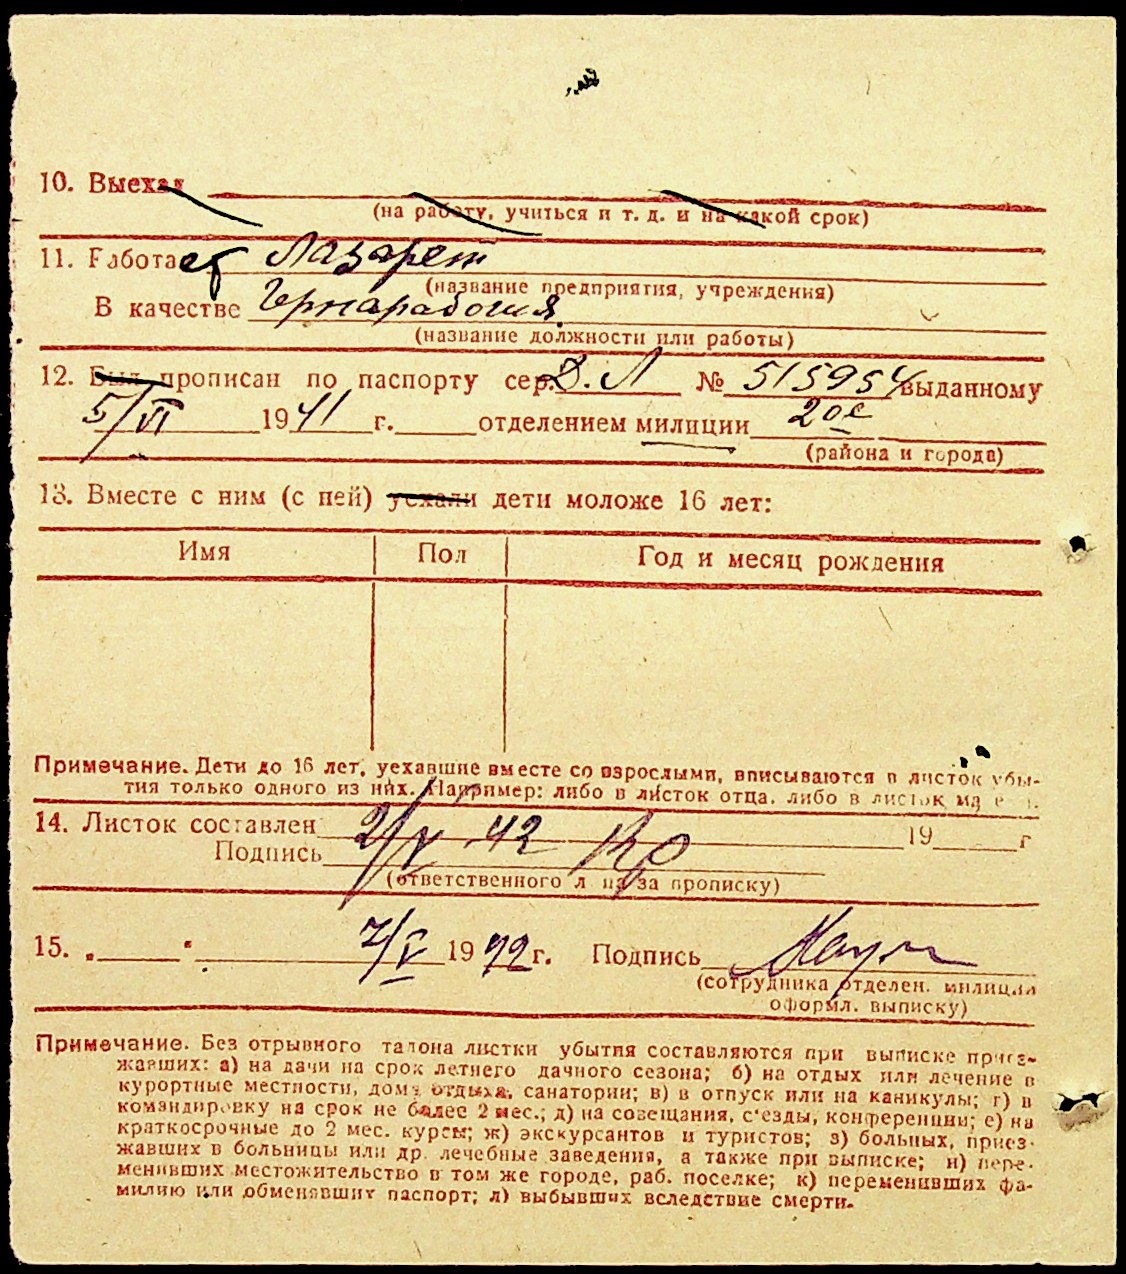 10. Выехал
(на работу, учиться и т. д. и на какой срок)
11. Работает Лазарет
(название предприятия, учреждения)
В качестве Чернарабочия
(название должности или работы)
12. Был прописан по паспорту сер. Д. Л № 515954 выданному
5/VI 1941 г. отделением милиции 20е
(района и города)
13. Вместе с ним (с ней) уехали дети моложе 16 лет:
Имя Пол Год и месяц рождения
Примечание. Дети до 16 лет, уехавшие вместе со взрослыми, вписываются в листок убы-
тия только одного из них. Например: либо в листок отца, либо в листок матери.
14. Листок составлен 2/V 42 19 г
Подпись
(ответственного лица за прописку)
15. „ “ 7/V 1942 г. Подпись
(сотрудника отделен. милиции
оформл. выписку)
Примечание. Без отрывного талона листки убытия составляются при выписке приез-
жавших: а) на дачи на срок летнего дачного сезона; б) на отдых или лечение в
курортные местности, дома отдыха, санатории; в) в отпуск или на каникулы; г) в
командировку на срок не более 2 мес.; д) на совещания, с'езды, конференции; е) на
краткосрочные до 2 мес. курсы; ж) экскурсантов и туристов; з) больных, приез-
жавших в больницы или др. лечебные заведения, а также при выписке; и) пере-
менивших местожительство в том же городе, раб. поселке; к) переменивших фа-
милию или обменявших паспорт; л) выбывших вследствие смерти.